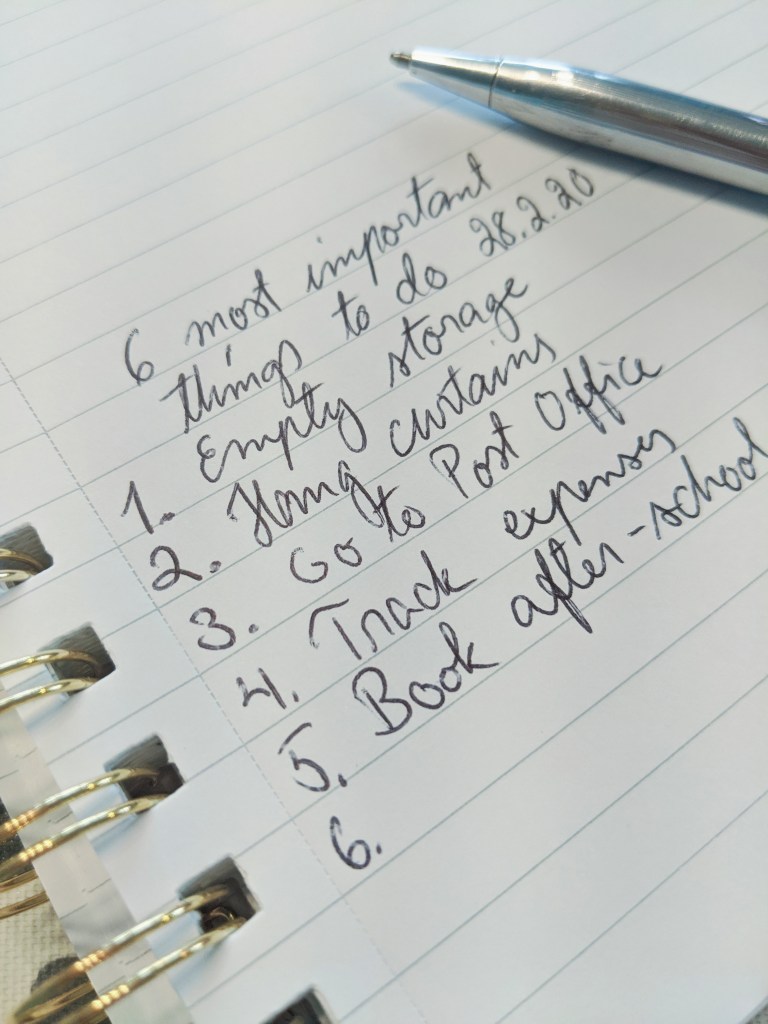 6 most important
things to do 28.2.20
1. Empty storage
2. Hang curtains
3. Go to Post Office
4. Track expenses
5. Book after-school
6.